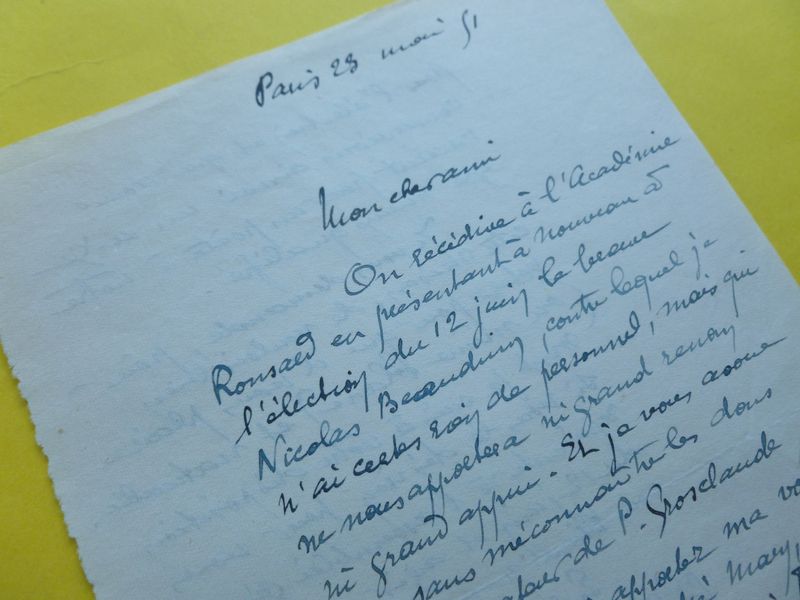 Paris 23 mai 51
Mon cher ami
On récidive à l'Académie
Ronsard en présentant à nouveau à
l'élection du 12 juin le brave
Nicolas Beauduin, contre lequel je
n'ai certes rien de personnel, mais qui
ne nous apportera ni grand renom
ni grand appui. Et je vous avoue
sans méconnaître les dons
de P. Grosclaude
apporter ma vo
Mary,